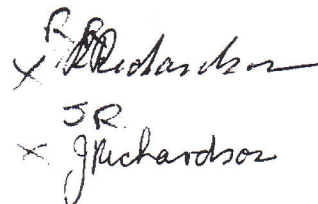 X Richardson
JR.
X JRichardson